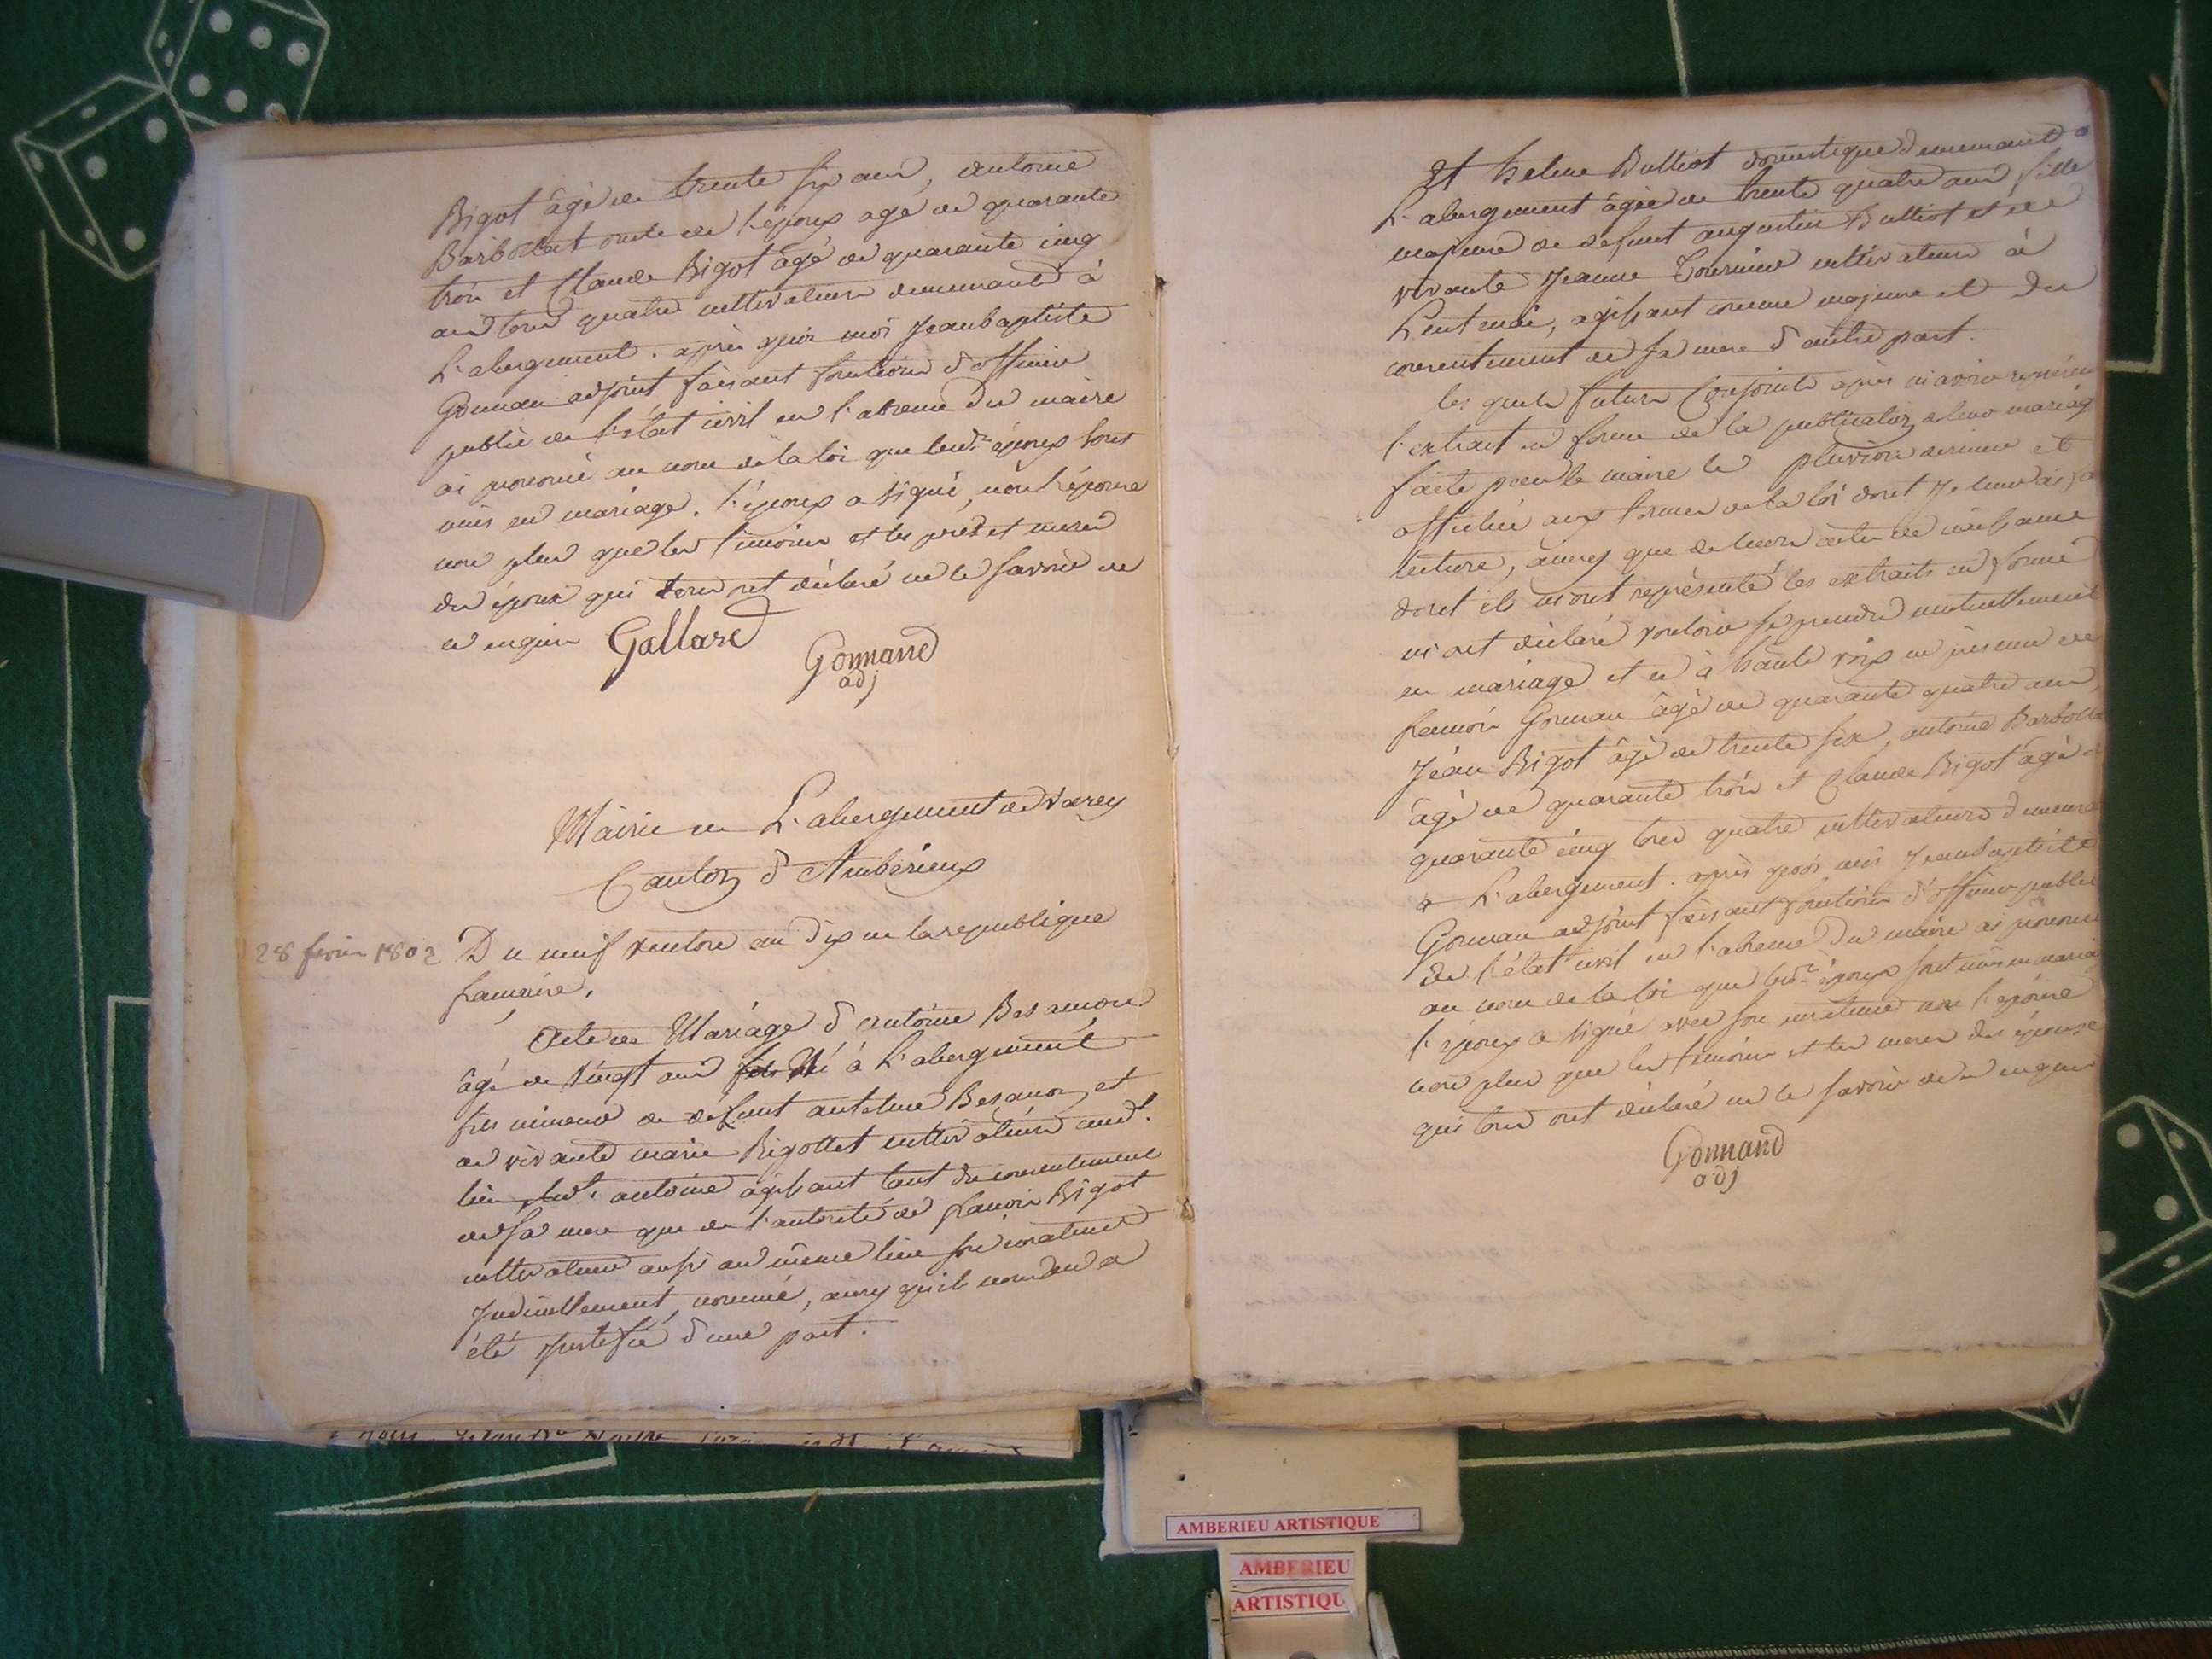 Bigot âgé de trente six ans, antoine
Barbollat oncle de l'époux age de quarante
trois et Claude Bigot âgé de quarante cinq
ans tous quatre cultivateurs demeurants à
L'abergement. après quoi moi Jeanbaptiste
Gonnan adjoint faisant fonctions d'officier
public de l'état civil en l'absence du maire
ai prononcé au nom de la loi que lesds. époux sont
unis en mariage. l'époux a signé, non l'épouse
non plus que les témoins et les pères et meres
des époux qui tous ont déclaré ne le savoir de
ce enquis Gallard
Gonnand
adj
Mairie de L'abergement de Varey
Canton d'Amberieux
28 fevrier 1802
Du neuf ventose an dix de la republique
francaise.
Acte de Mariage d'antoine Besancon
âgé de vingt ans Né à L'abergement
fils mineur de defunt antelme Besancon et
de vivante marie Bigottet cultivateurs aud.
lieu led. antoine agissant tant du consentement
de sa mere que de l'autorité de francois Bigot
cultivateur aussi au même lieu son curateur
Judiciellement nommé, ainsy qu'il nous a
été justifié d'une part.
Et helene Bulliot domestique demeurant a
L'abergement âgée de trente quatre ans fille
majeure de defunt augustin Bulliot et de
vivante Jeanne cultivateurs à
Lentenai, agissant comme majeure et du
consentement de sa mere d'autre part.
les quels futurs Conjoints après m'avoir représenté
l'extrait en forme de la publication de leur mariag
faite par le maire le pluviose dernier et
affichée aux termes de la loi dont Je leur ai fa
lecture, ainsy que de leurs actes de naissance
dont ils m'ont représenté les extraits en forme
m'ont déclaré vouloir se prendre mutuellement
en mariage et ce à haute voix en présence de
francois Gonnan âgé de quarante quatre ans,
Jean Bigot âgé de trente six, antoine Barbolla
âgé de quarante trois et Claude Bigot âgé d
quarante cinq tous quatre cultivateurs demeura
a L'abergement. après quoi moi Jeanbaptiste
Gonnan adjoint faisant fonctions d'officier public
de l'état civil en l'absence du maire ai prononcé
au nom de la loi que lesds. époux sont unis en maria
l'époux a signé avec son curateur non l'épouse
non plus que les témoins et les meres des épouse
qui tous ont déclaré ne le savoir de ce enquis
Gonnand
adj
AMBERIEU ARTISTIQUE
AMBERIEU
ARTISTIQU